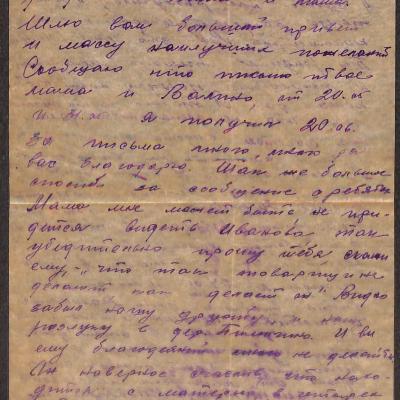 Шлю вам большой привет
и массу наилучших пожеланий
Сообщаю что письмо твое
мама и Валино, от 20.
и я получил 20
За письма много, много раз
вас благодарю. Так же большое
спасибо за сообщение о ребятах
Мама мне может быть не при-
дется видеть Иванова так
убедительно прошу тебя скажи
ему, "что так товарищи не
делают как делает он" Видно
забыл нашу дружбу и нашу
разлуку в дер. И вы
ему не делайте
Он наверное счастлив, что нахо-
дится с матерью в